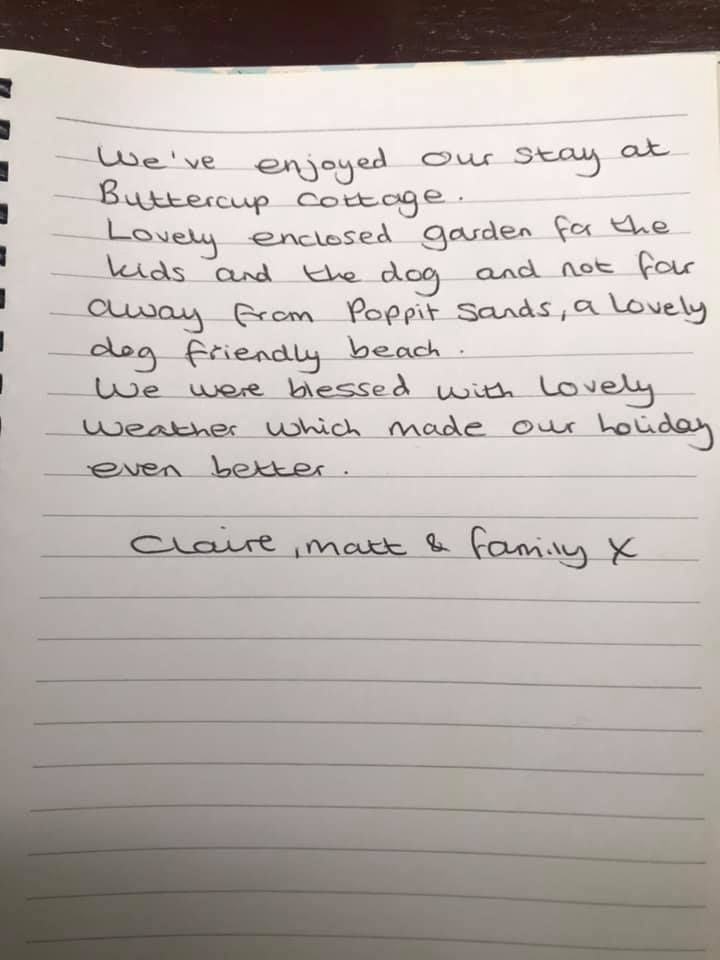 We've enjoyed our stay at
Buttercup cottage.
Lovely enclosed garden for the
kids and the dog and not far
away from Poppit Sands, a lovely
dog friendly beach.
We were blessed with lovely
weather which made our holiday
even better.
Claire, matt & family x